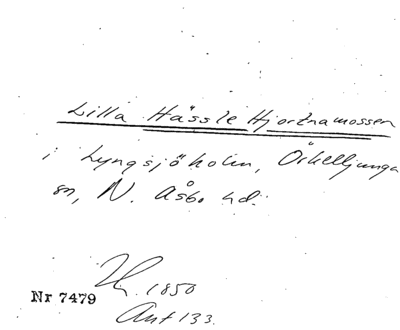 Lilla Hässle Hjortnamossen
i Lyngsjöholm, Örkelljunga
sn, N. Åsbo hd.
1850
Nr 7479
Ant 133.